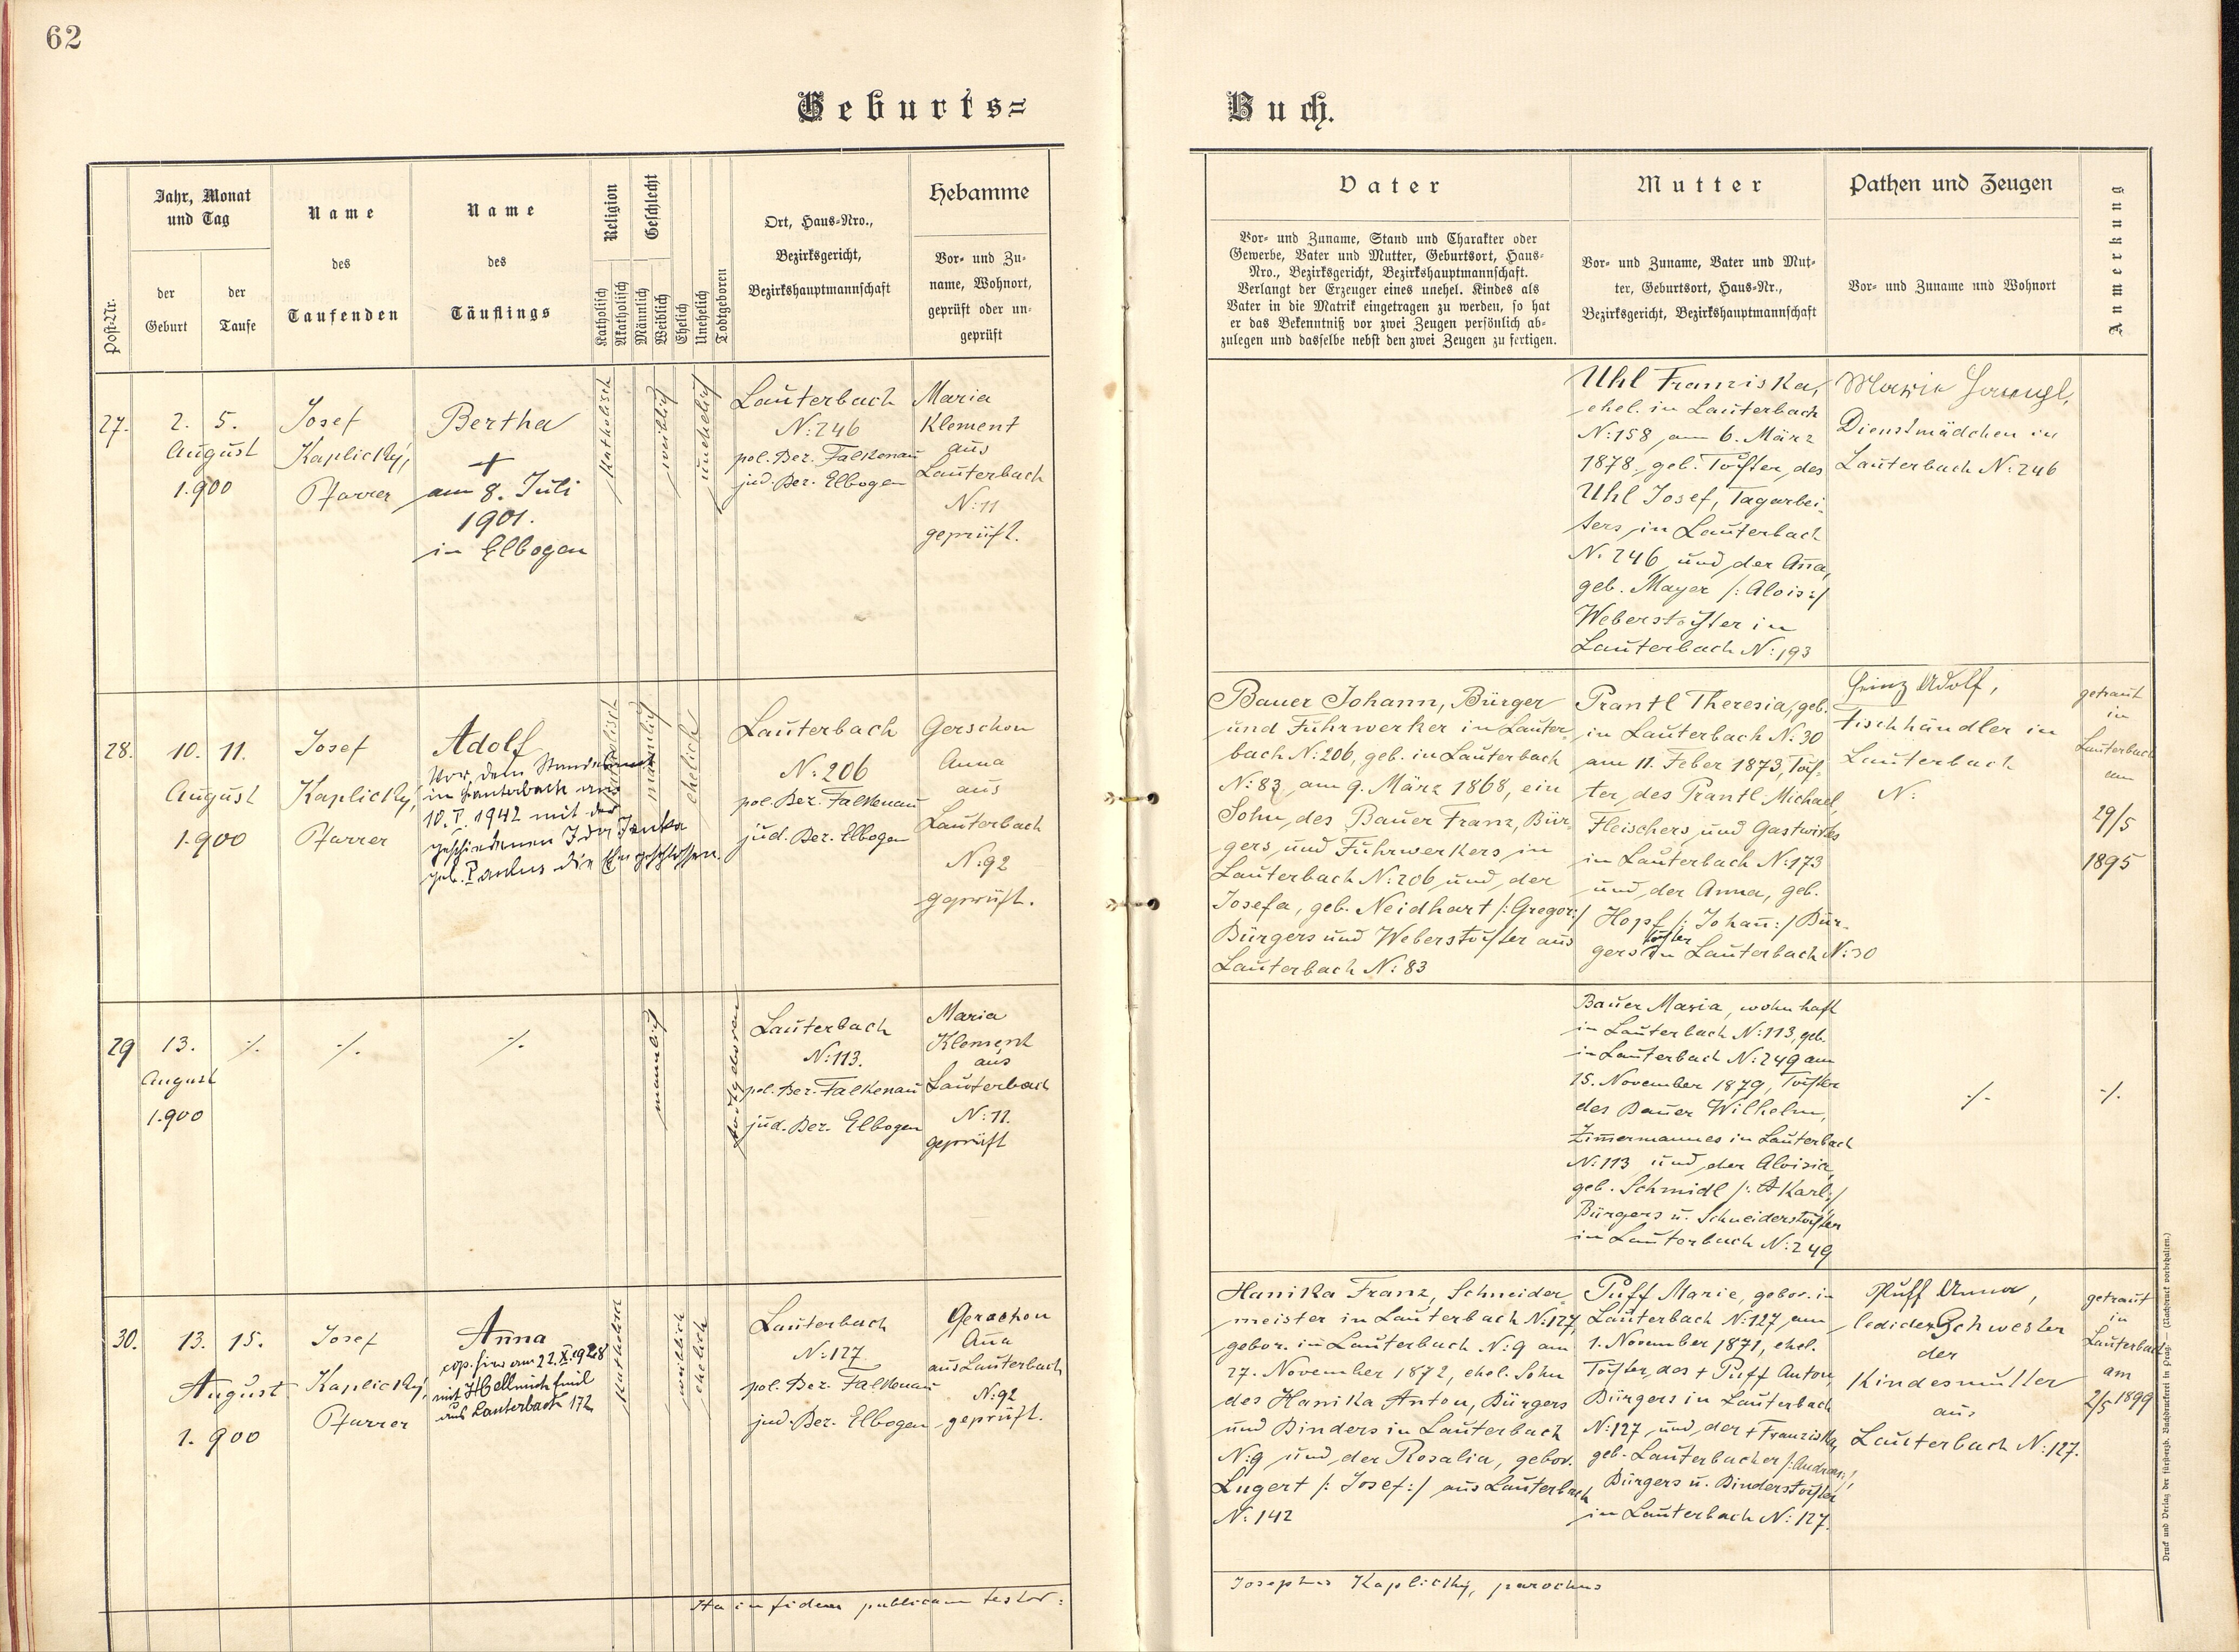 62
Geburts=
Buch.
Post-Nr.
Jahr, Monat
und Tag
der
Geburt
der
Taufe
Name
des
Taufenden
Name
des
Täuflings
Religion
Katholisch
Akatholisch
Geschlecht
Männlich
Weiblich
Ehelich
Unehelich
Todtgeboren
Ort, Haus-Nro.,
Bezirksgericht,
Bezirkshauptmannschaft
Hebamme
Vor- und Zu-
name, Wohnort,
geprüft oder un-
geprüft
Vater
Vor- und Zuname, Stand und Charakter oder
Gewerbe, Vater und Mutter, Geburtsort, Haus-
Nro., Bezirksgericht, Bezirkshauptmannschaft.
Verlangt der Erzeuger eines unehel. Kindes als
Vater in die Matrik eingetragen zu werden, so hat
er das Bekenntniß vor zwei Zeugen persönlich ab-
zulegen und dasselbe nebst den zwei Zeugen zu fertigen.
Mutter
Vor- und Zuname, Vater und Mut-
ter, Geburtsort, Haus-Nr.,
Bezirksgericht, Bezirkshauptmannschaft
Pathen und Zeugen
Vor- und Zuname und Wohnort
Anmerkung
27.
2. 5.
August
1.900
Josef
Kaplický,
Pfarrer
Bertha
+
am 8. Juli
1901.
in Elbogen
katholisch
weiblich
unehelich
Lauterbach
N: 246
pol. Bez. Falkenau
jud. Bez. Elbogen
Maria
Klement
aus
Lauterbach
N: 11
geprüft.
Uhl Franziska,
ehel. in Lauterbach
N: 158 am 6. März
1878, geb. Tochter des
Uhl Josef, Tagarbei-
ters in Lauterbach
N: 246 und der Ana,
geb. Mayer /: Alois :/
Weberstochter in
Lauterbach N: 193
Marie
Dienstmädchen in
Lauterbach N: 246
28.
10. 11.
August
1.900
Josef
Kaplický,
Pfarrer
Adolf
Vor dem Standesamt
in Lauterbach am
10. I. 1942 mit der
geschiedenen Ida
geb. Paulus die Ehe geschlossen.
katholisch
männlich
ehelich
Lauterbach
N: 206
pol. Bez. Falkenau
jud. Bez. Elbogen
Gerschon
Anna
aus
Lauterbach
N: 92
geprüft.
Bauer Johann, Bürger
und Fuhrwerker in Lauter-
bach N: 206, geb. in Lauterbach
N: 83 am 9. März 1868, ein
Sohn des Bauer Franz, Bür-
gers und Fuhrwerkers in
Lauterbach N: 206 und der
Josefa, geb. Neidhart /: Gregor :/
Bürgers und Weberstochter aus
Lauterbach N: 83
Prantl Theresia, geb.
in Lauterbach N: 30
am 11. Feber 1873, Toch-
ter des Prantl Michael,
Fleischers und Gastwirtes
in Lauterbach N: 173
und der Anna, geb.
Hopf /: Johan :/ Bür-
gerstochter in Lauterbach N: 30
Heinz Adolf,
Fischhändler in
Lauterbach
N:
getraut
in
Lauterbach
am
29/5
1895
29
13.
August
1.900
·/.
·/.
·/.
männlich
todtgeboren
Lauterbach
N: 113.
pol. Bez. Falkenau
jud. Bez. Elbogen
Maria
Klement
aus
Lauterbach
N: 11.
geprüft
Bauer Maria, wohnhaft
in Lauterbach N: 113, geb.
in Lauterbach N: 249 am
15. November 1879, Tochter
des Bauer Wilhelm,
Zimermannes in Lauterbach
N: 113 und der Aloisia,
geb. Schmidl /: Karl :/
Bürgers u. Schneiderstochter
in Lauterbach N: 249
·/.
·/.
30.
13. 15.
August
1.900
Josef
Kaplický,
Pfarrer
Anna
cop. hier am 22. X. 1928
mit Hellmich Emil
aus Lauterbach 172
katholisch
weiblich
ehelich
Lauterbach
N: 127
pol. Bez. Falkenau
jud. Bez. Elbogen
Gerschon
Ana
aus Lauterbach
N: 92
geprüft.
Hanika Franz, Schneider-
meister in Lauterbach N: 127,
gebor. in Lauterbach N: 9 am
27. November 1872, ehel. Sohn
des Hanika Anton, Bürgers
und Binders in Lauterbach
N: 9 und der Rosalia, gebor.
Lugert /: Josef :/ aus Lauterbach
N: 142
Puff Marie, gebor. in
Lauterbach N: 127 am
1. November 1871, ehel.
Tochter des + Puff Anton,
Bürgers in Lauterbach
N: 127 und der + Franziska,
geb. Lauterbacher /: Andreas :/
Bürgers u. Binderstochter
in Lauterbach N: 127.
Puff Anna,
ledige Schwester
der
Kindesmutter
aus
Lauterbach N: 127.
getraut
in
Lauterbach
am
2/5 1899
Ita in fidem publicam testor:
Josephus Kaplický, parochus
Druck und Verlag der fürsterzb. Buchdruckerei in Prag. — (Nachdruck vorbehalten.)